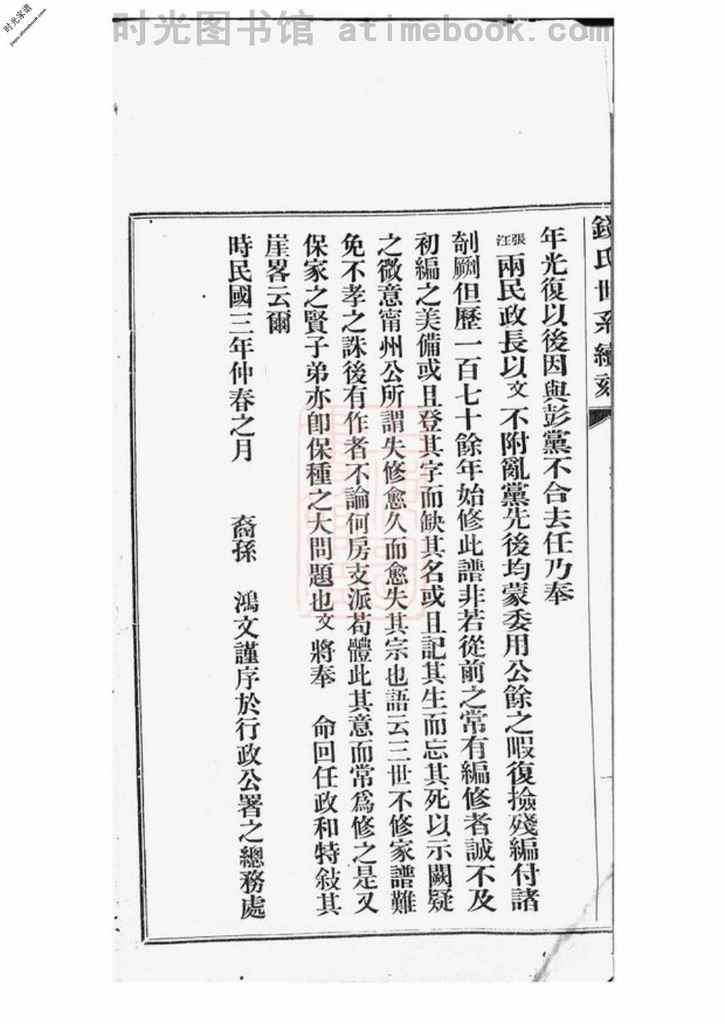 时光图书馆 atimebook.com
时光家谱
錢氏世系續刻
年光復以後因與彭黨不合去任乃奉
張江兩民政長以文不附亂黨先後均蒙委用公餘之暇復撿殘編付諸
剞劂但歷一百七十餘年始修此譜非若從前之常有編修者誠不及
初編之美備或且登其字而缺其名或且記其生而忘其死以示闕疑
之微意甯州公所謂失修愈久而愈失其宗也語云三世不修家譜難
免不孝之誅後有作者不論何房支派苟體此其意而常爲修之是又
保家之賢子弟亦卽保種之大問題也文將奉 命回任政和特敍其
崖畧云爾
時民國三年仲春之月 裔孫 鴻文謹序於行政公署之總務處